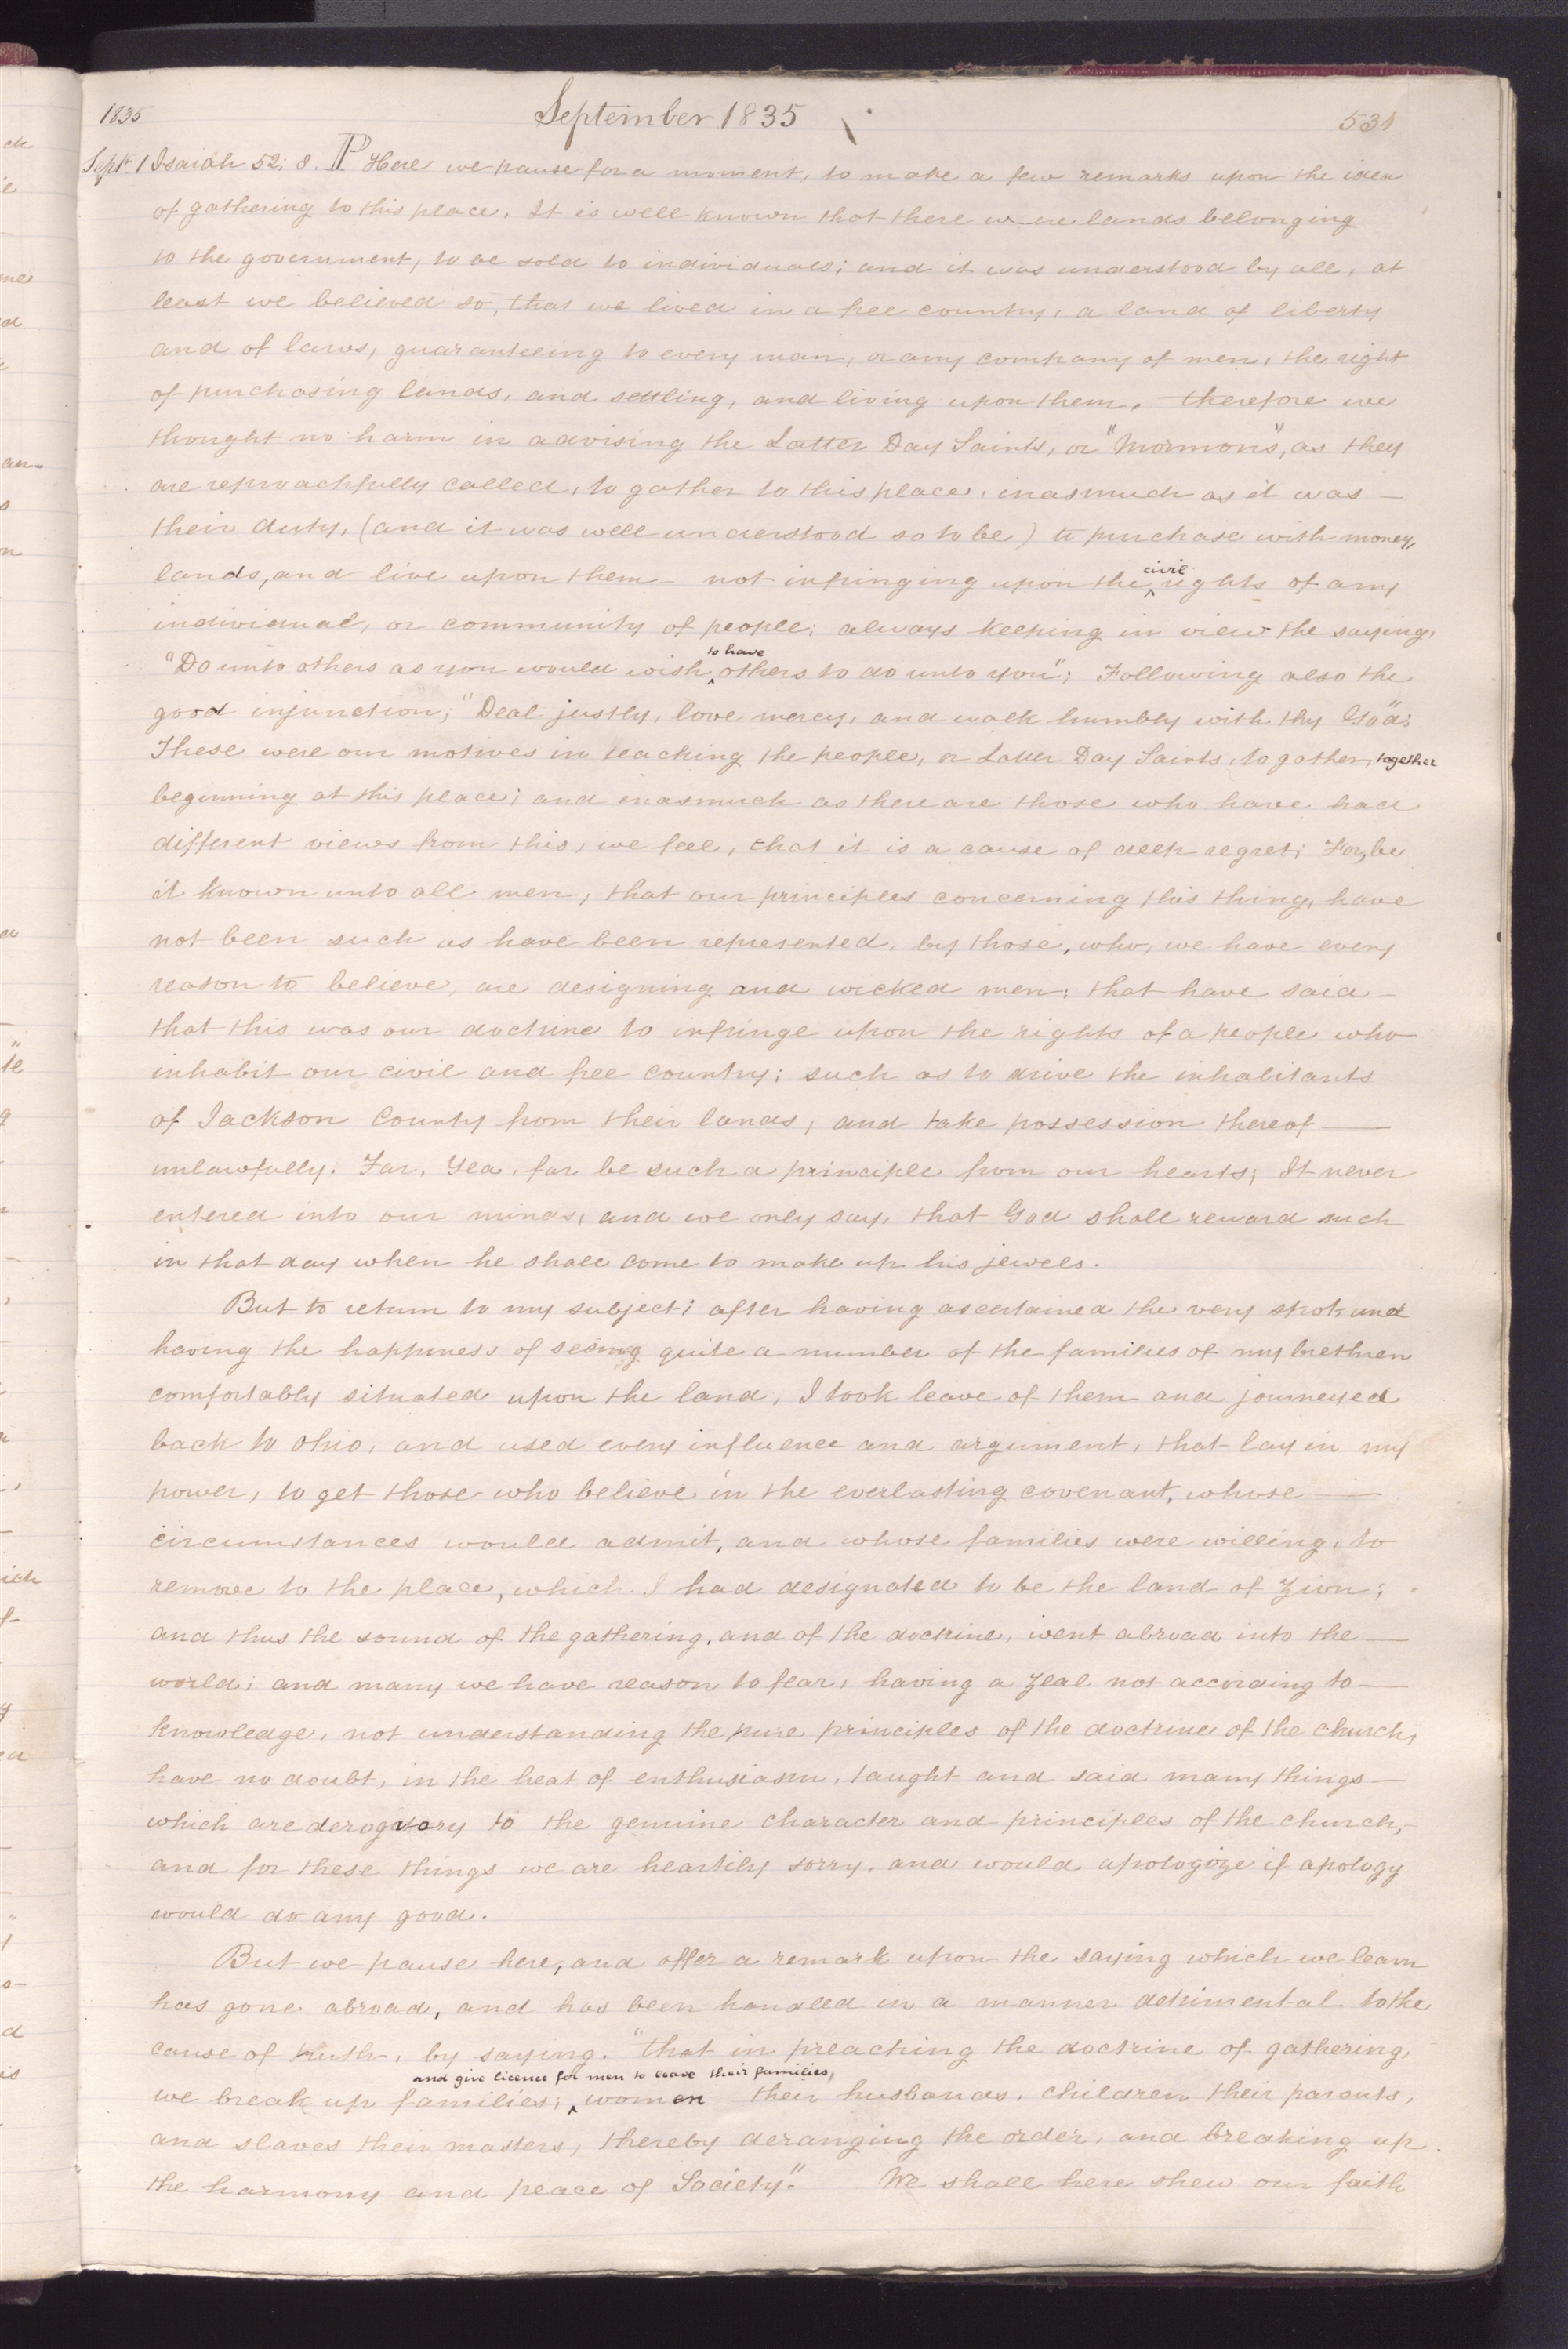 1835 September 1835 531
Sept. 1 Isaiah 52; 8. P Here we pause for a moment, to make a few remarks upon the idea
of gathering to this place. It is well known that there were lands belonging
to the government, to be sold to individuals; and it was understood by all, at
least we believed so, that we lived in a free country, a land of liberty
and of laws, guaranteeing to every man, or any company of men, the right
of purchasing lands, and settling, and living upon them. therefore we
thought no harm in advising the Latter Day Saints, or "Mormons", as they
are reproachfully called, to gather to this place, inasmuch as it was —
their duty, (and it was well understood so to be) to purchase with money,
lands, and live upon them — not infringing upon the ^civil rights of any
individual, or community of people; always keeping in view the saying,
"Do unto others as you would wish ^to have others to do unto you"; Following also the
good injunction; "Deal justly, love mercy, and walk humbly with thy God".
These were our motives in teaching the people, or Latter Day Saints, to gather, together
beginning at this place; and inasmuch as there are those who have had
different views from this, we feel, that it is a cause of deep regret; For, be
it known unto all men, that our principles concerning this thing, have
not been such as have been represented, by those, who, we have every
reason to believe, are designing and wicked men; that have said —
that this was our doctrine to infringe upon the rights of a people who
inhabit our civil and free country; such as to drive the inhabitants
of Jackson County from their lands, and take possession thereof —
unlawfully. Far, Yea, far be such a principle from our hearts; It never
entered into our minds, and we only say, that God shall reward such
in that day when he shall come to make up his jewels.
But to return to my subject; after having ascertained the very spot, and
having the happiness of seeing quite a number of the families of my brethren
comfortably situated upon the land, I took leave of them and journeyed
back to Ohio, and used every influence and argument, that lay in my
power, to get those who believe in the everlasting covenant, whose —
circumstances would admit, and whose families were willing, to
remove to the place, which I had designated to be the land of Zion;
and thus the sound of the gathering, and of the doctrine, went abroad into the —
world; and many we have reason to fear, having a zeal not according to —
knowledge, not understanding the pure principles of the doctrine of the church,
have no doubt, in the heat of enthusiasm, taught and said many things —
which are derogatory to the genuine character and principles of the church, —
and for these things we are heartily sorry, and would apologize if apology
would do any good.
But we pause here, and offer a remark upon the saying which we learn
has gone abroad, and has been handled in a manner detrimental to the
cause of truth, by saying. "that in preaching the doctrine of gathering,
we break up families; ^and give licence for men to leave their families, women their husbands, children their parents,
and slaves their masters, thereby deranging the order, and breaking up
the harmony and peace of Society". We shall here shew our faith